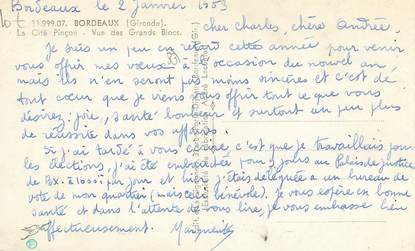 Bordeaux le 2 Janvier 1953
11.999.07. BORDEAUX (Gironde).
La Cité Pinçon - Vue des Grands Blocs.
cher Charles, chère Andrée,
Je suis un peu en retard cette année pour venir
vous offrir mes voeux à l'occasion du nouvel an
mais ils n'en seront pas moins sincères et c'est de
tout coeur que je viens vous offrir tout ce que vous
désirez: joie, santé bonheur et surtout un peu plus
de réussite dans vos affaires.
Si j'ai tardé à vous écrire, c'est que je travaillais pour
les élections, j'ai été embauchée pour 8 jours au Palais de justice
de Bx. à 1000f par jour et hier j'étais déléguée à un bureau de
vote de mon quartier (mais ceci bénévole). Je vous espère en bonne
santé et dans l'attente de vous lire, je vous embrasse bien
affectueusement. Marguerite